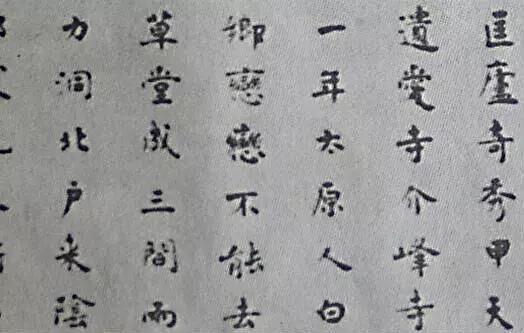 匡廬奇秀甲天
遺愛寺介峰寺
一年太原人白
鄉戀戀不能去
草堂成三間兩
力洞北戶来陰